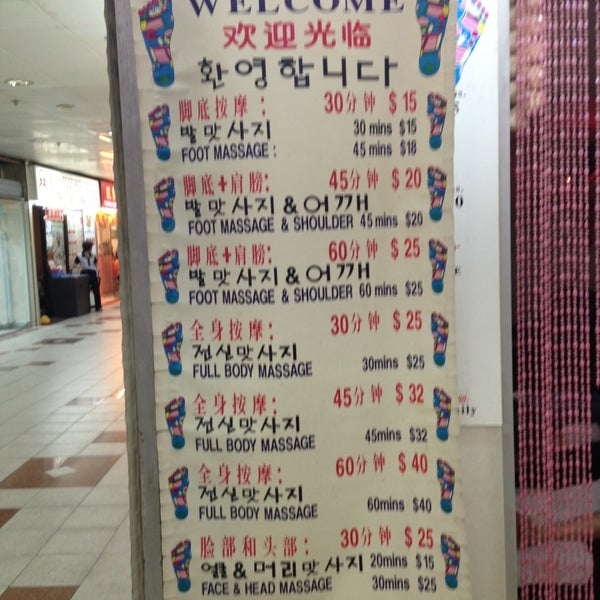 WELCOME
欢迎光临
환영합니다
脚底按摩： 30分钟 $15
발맛사지 30 mins $15
FOOT MASSAGE : 45 mins $18
脚底+肩膀： 45分钟 $20
발맛사지&어깨
FOOT MASSAGE & SHOULDER 45 mins $20
脚底+肩膀： 60分钟 $25
발맛사지&어깨
FOOT MASSAGE & SHOULDER 60 mins $25
全身按摩： 30分钟 $25
전실맛사지
FULL BODY MASSAGE 30mins $25
全身按摩： 45分钟 $32
전실맛사지
FULL BODY MASSAGE 45mins $32
全身按摩： 60分钟 $40
전실맛사지
FULL BODY MASSAGE 60mins $40
脸部和头部： 30分钟 $25
& 머리맛사지 20mins $15
FACE & HEAD MASSAGE 30mins $25